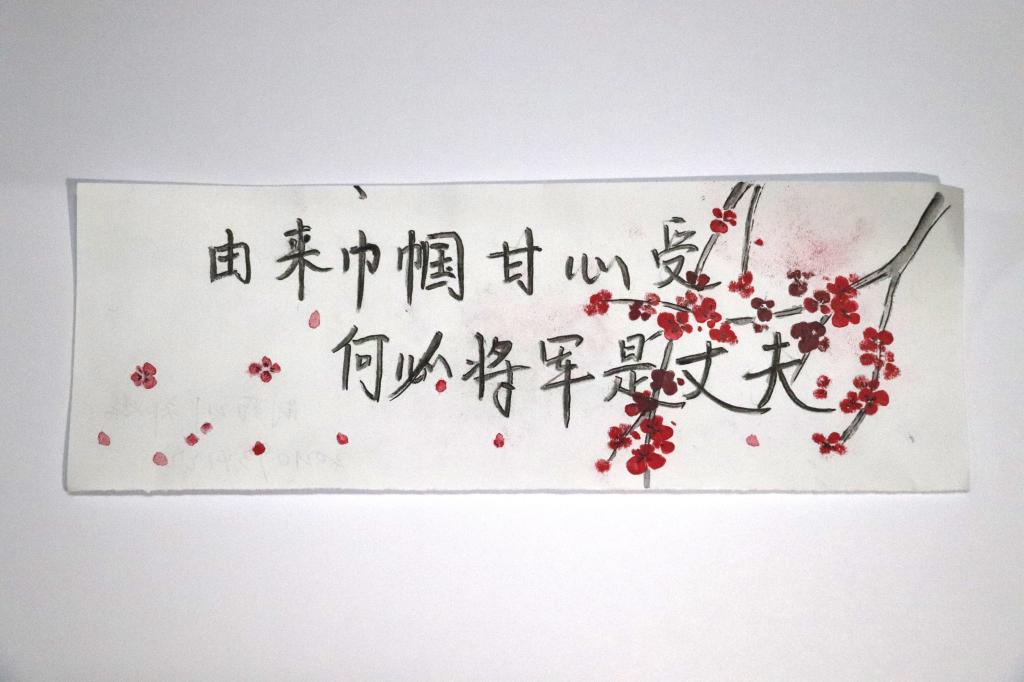 由来巾帼甘心受
何必将军是丈夫